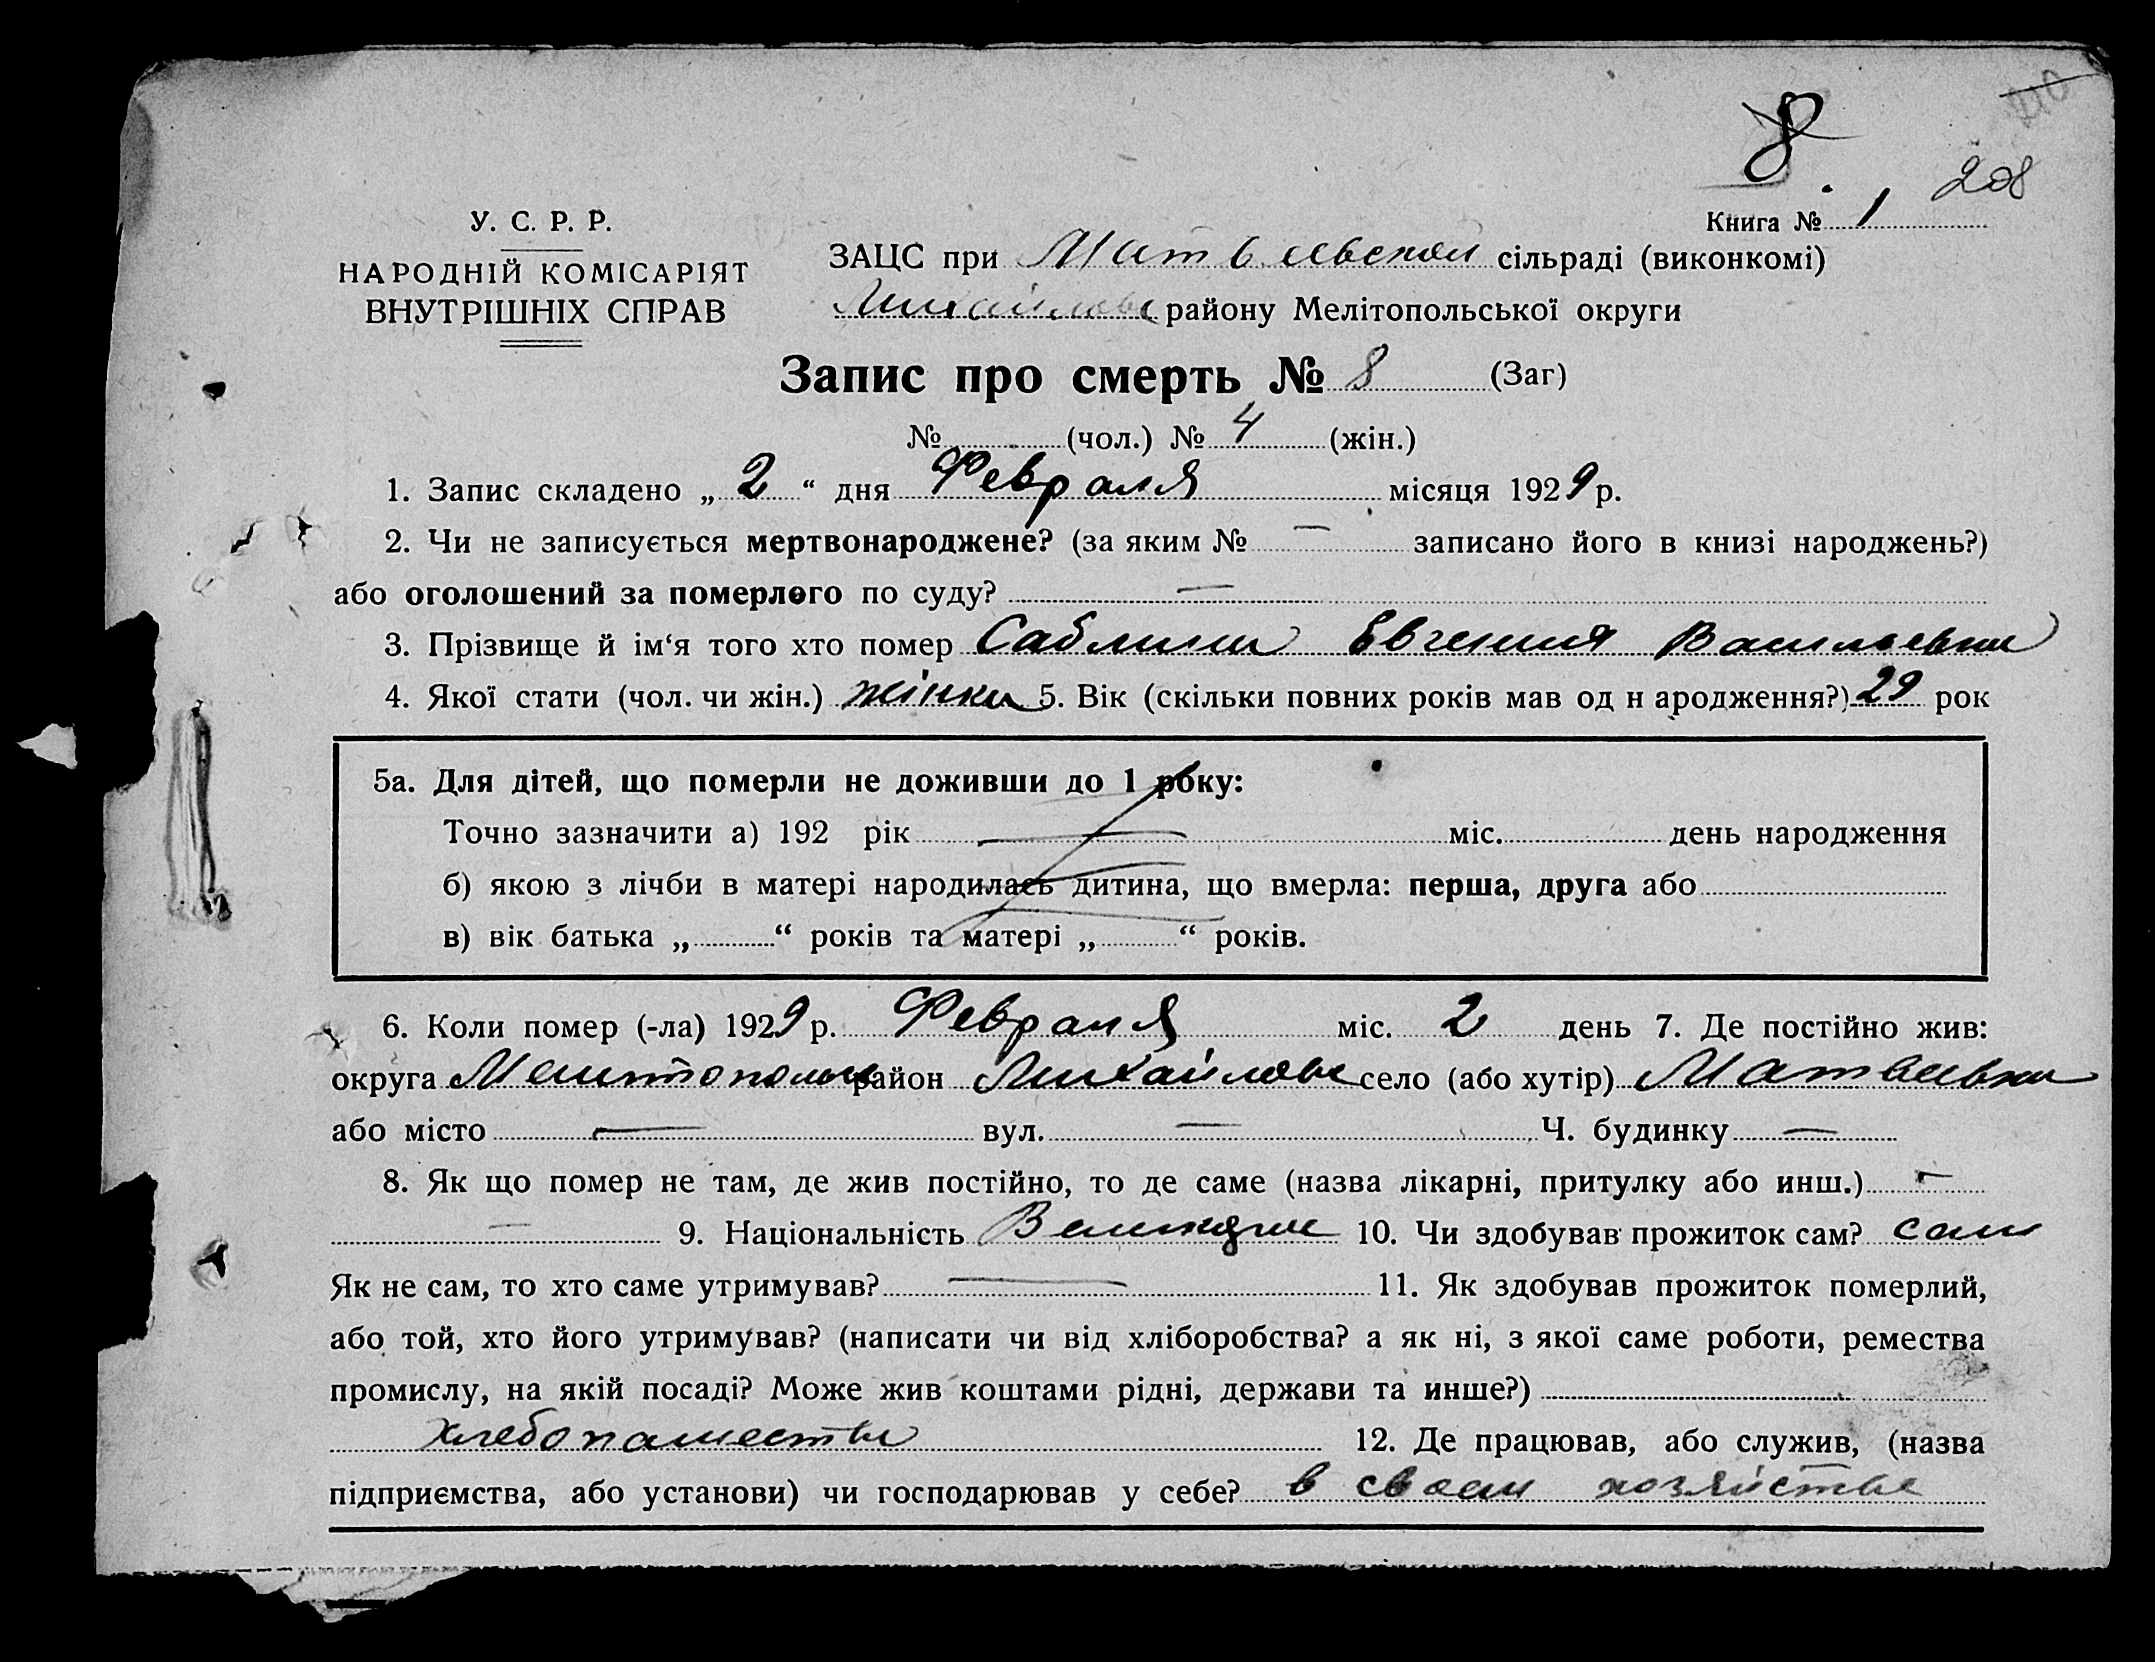 8
208
У. С. Р. Р.
Книга № 1
НАРОДНІЙ КОМІСАРІЯТ
ВНУТРІШНІХ СПРАВ
ЗАЦС при сільраді (виконкомі)
Михайловс району Мелітопольської округи
Запис про смерть № 8 (Заг)
№ (чол.) № 4 (жін.)
1. Запис складено „ 2 “ дня Февраля місяця 1929 р.
2. Чи не записується мертвонароджене? (за яким № — записано його в книзі народжень?)
або оголошений за померлого по суду? —
3. Прізвище й ім‘я того хто помер Евгения Васильевна
4. Якої стати (чол. чи жін.) жінка 5. Вік (скільки повних років мав од н ародження?) 29 рок
5а. Для дітей, що померли не доживши до 1 року:
Точно зазначити а) 192 рік — міс. день народження
б) якою з лічби в матері народилась дитина, що вмерла: перша, друга або
в) вік батька „ “ років та матері „ “ років.
6. Коли помер (-ла) 1929 р. Февраля міс. 2 день 7. Де постійно жив:
округа район Михайловс село (або хутір)
або місто — вул. — Ч. будинку —
8. Як що помер не там, де жив постійно, то де саме (назва лікарні, притулку або инш.) —
— 9. Національність 10. Чи здобував прожиток сам? сам
Як не сам, то хто саме утримував? — 11. Як здобував прожиток померлий,
або той, хто його утримував? (написати чи від хліборобства? а як ні, з якої саме роботи, ремества
промислу, на якій посаді? Може жив коштами рідні, держави та инше?)
12. Де працював, або служив, (назва
підприємства, або установи) чи господарював у себе? в своем хозяйстве